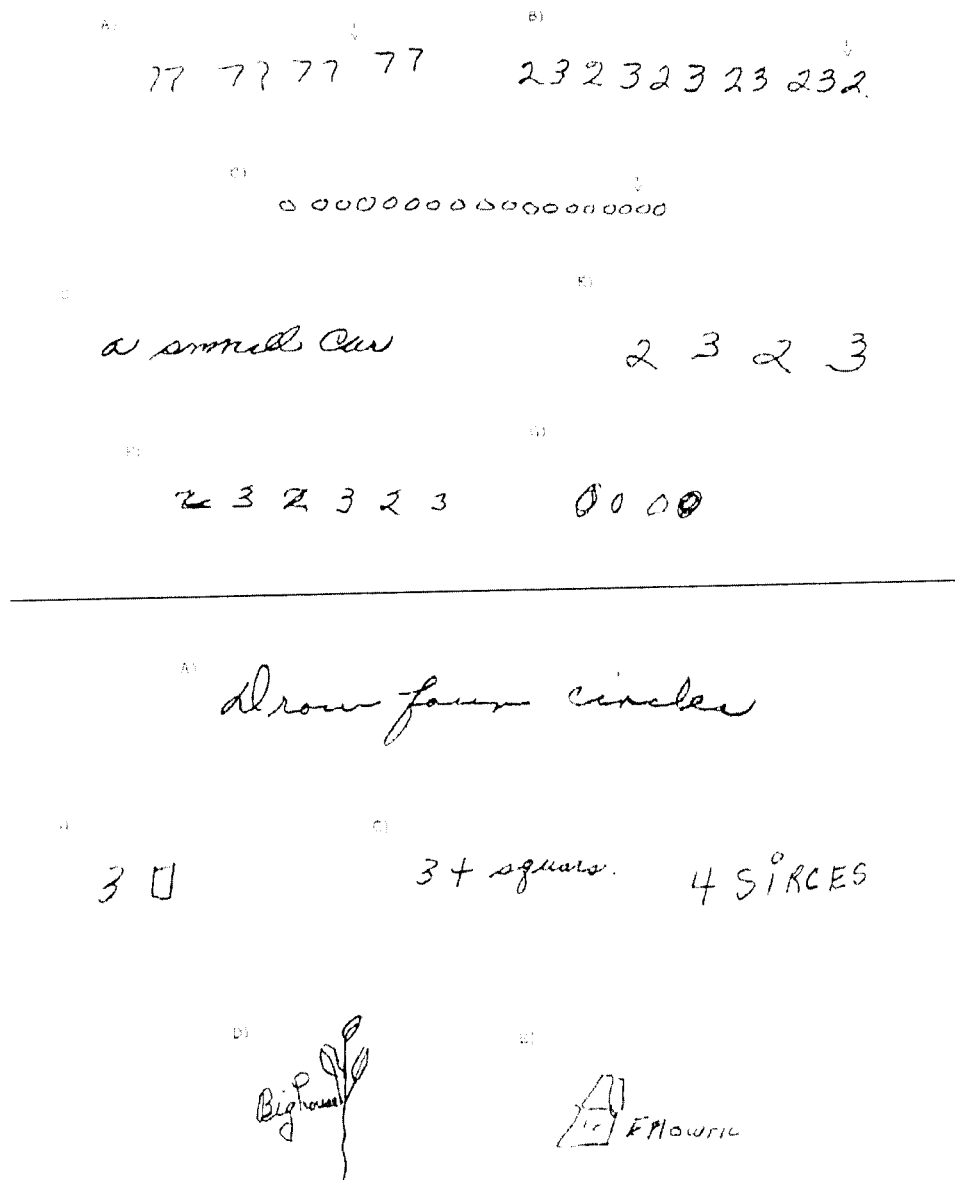 A) B)
77 77 77 77 23 2 3 2 3 23 232.
C)
0 0000000000000000
E)
a small Car 2 3 2 3
F) G)
2 3 2 3 2 3 0000
A) Draw four circles
C)
3 3 + squars. 4 SiRCES
D) E)
Big house